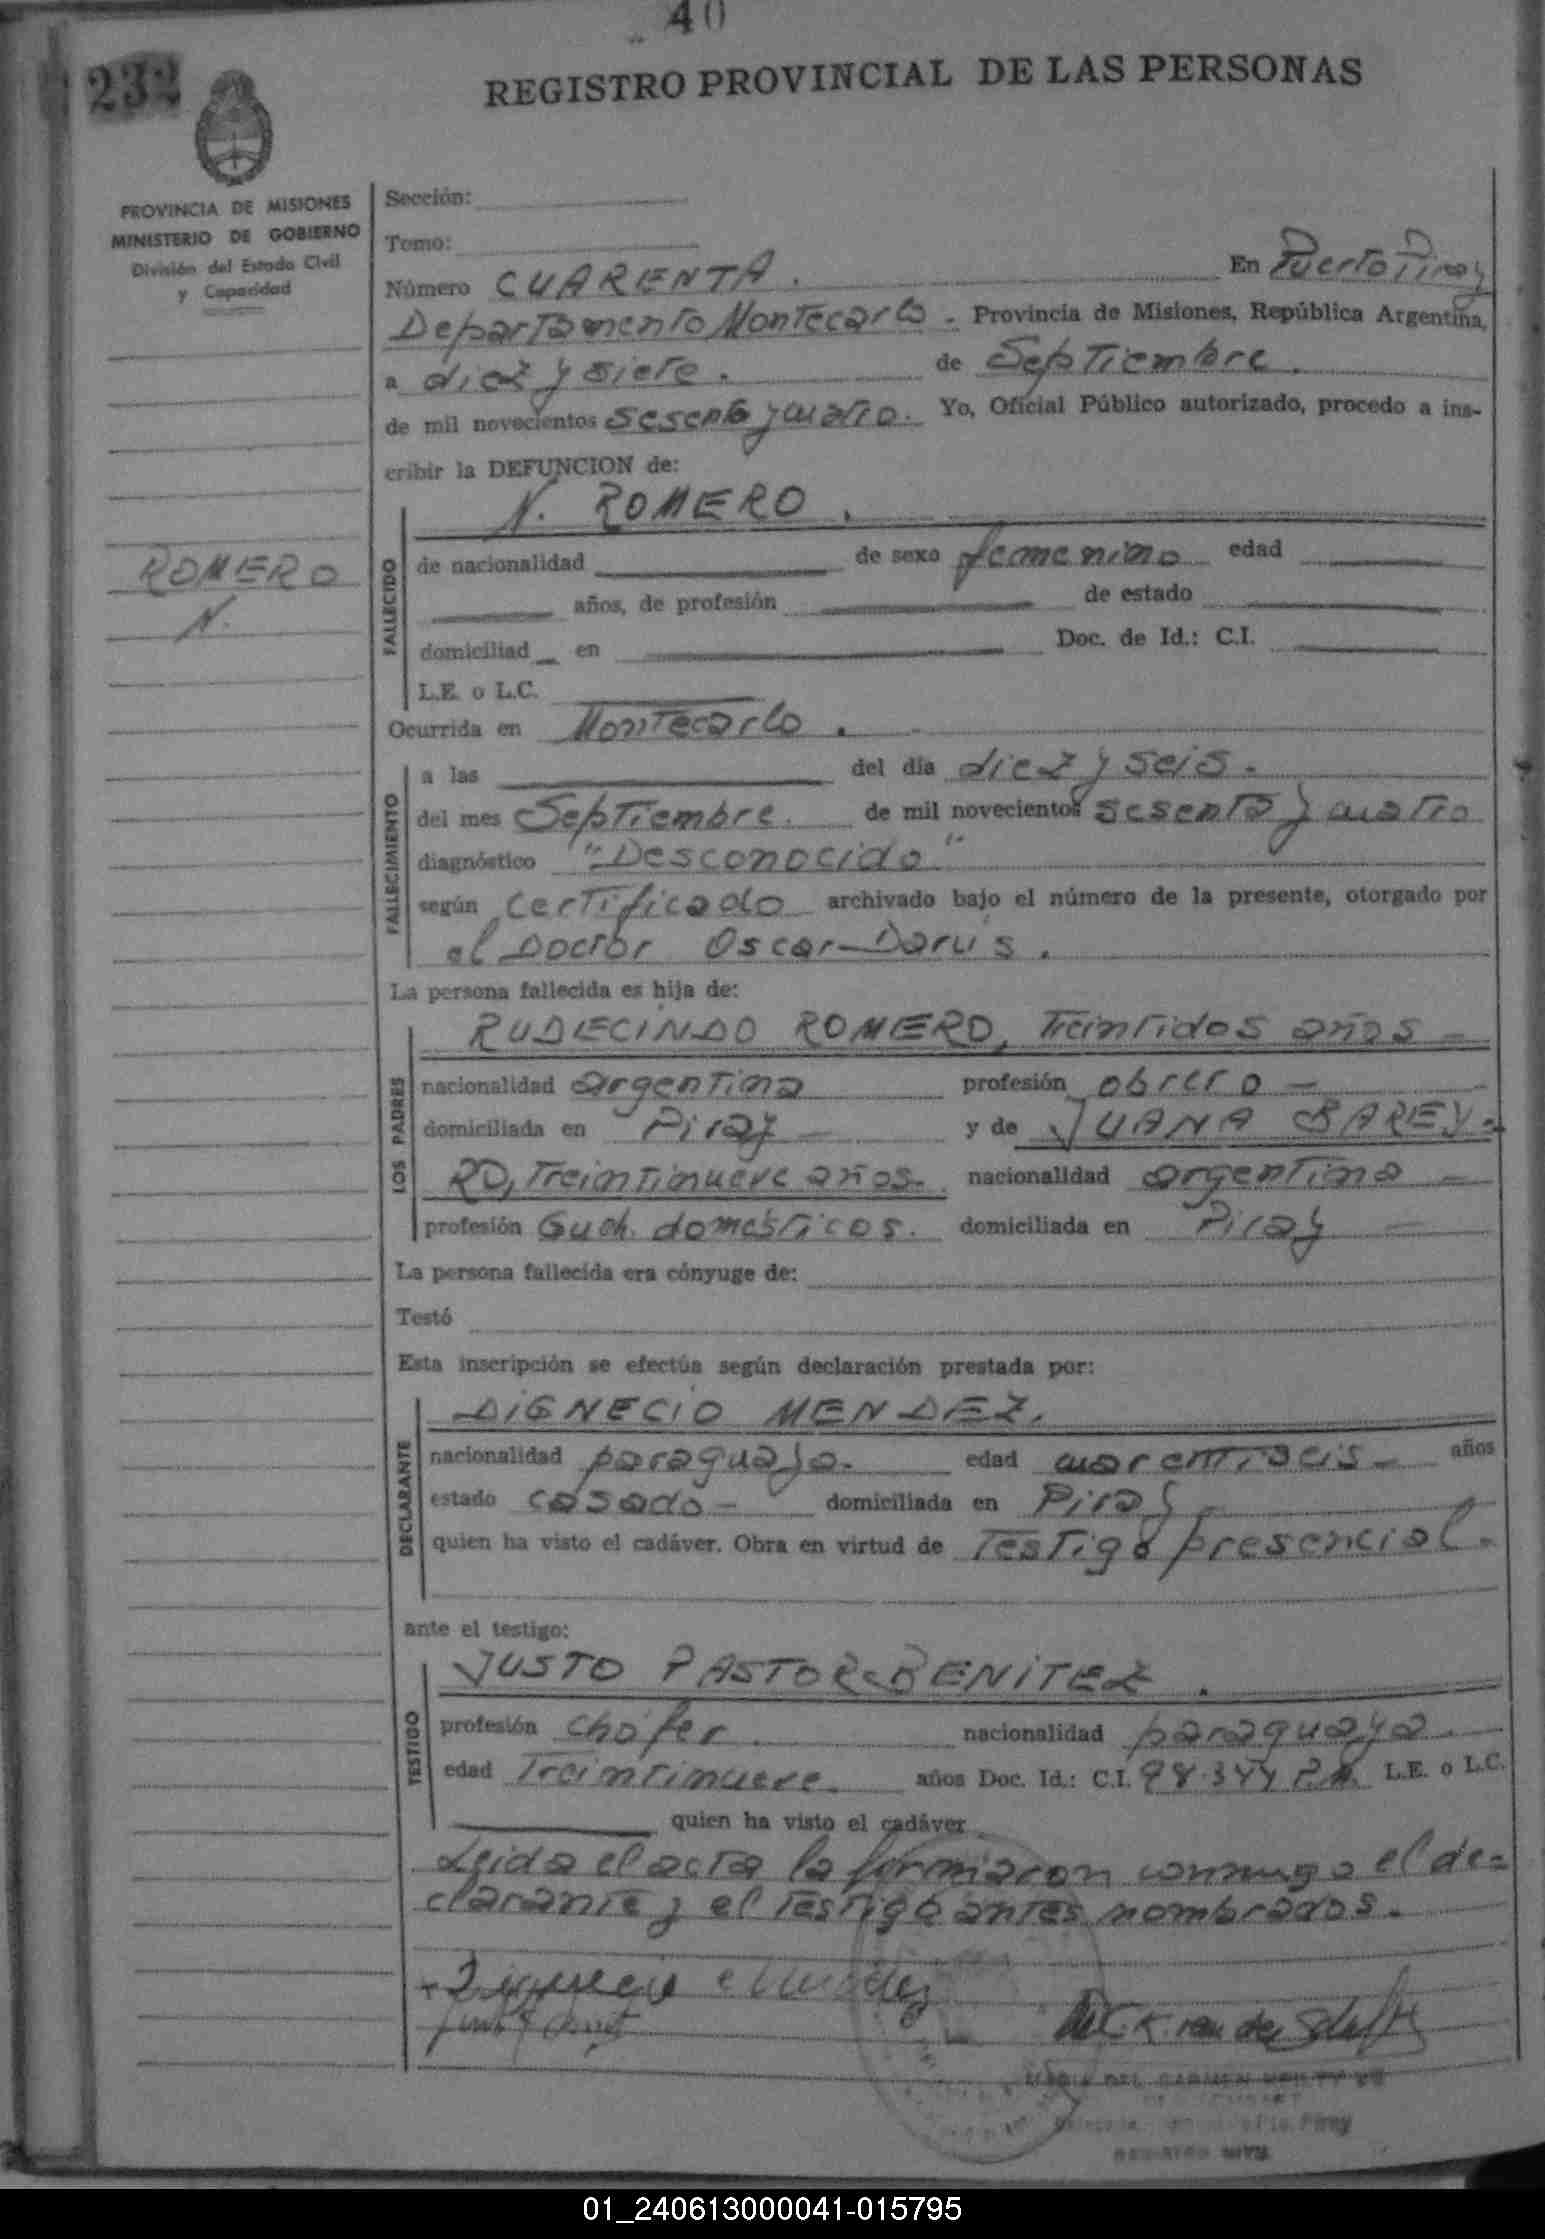 40
232
REGISTRO PROVINCIAL DE LAS PERSONAS
PROVINCIA DE MISIONES
MINISTERIO DE GOBIERNO
División del Estado Civil
y Capacidad
ROMERO
N.
Sección:
Tomo:
Número CUARENTA. En Puerto Piray
Departamento Montecarlo. Provincia de Misiones, República Argentina,
a diez y siete. de Septiembre.
de mil novecientos sesenta y cuatro. Yo, Oficial Público autorizado, procedo a ins-
cribir la DEFUNCION de:
N. ROMERO.
FALLECIDO
de nacionalidad de sexo femenino edad
años, de profesión de estado
domiciliad en Doc. de Id.: C.I.
L.E. o L.C.
Ocurrida en Montecarlo.
FALLECIMIENTO
a las del día diez y seis.
del mes Septiembre. de mil novecientos sesenta y cuatro
diagnóstico "Desconocido"
según certificado archivado bajo el número de la presente, otorgado por
el Doctor Oscar Darú's.
La persona fallecida es hija de:
LOS PADRES
RUDECINDO ROMERO, Treintidos años -
nacionalidad argentina profesión obrero -
domiciliada en Piray - y de JUANA BAREY-
RO, Treintinueve años. nacionalidad argentina -
profesión Queh. domésticos. domiciliada en Piray -
La persona fallecida era cónyuge de:
Testó
Esta inscripción se efectúa según declaración prestada por:
DECLARANTE
DIGNECIO MENDEZ.
nacionalidad paraguaya. edad cuarentiseis - años
estado casado - domiciliada en Piray
quien ha visto el cadáver. Obra en virtud de Testigo presencial.
ante el testigo:
TESTIGO
JUSTO PASTOR BENITEZ.
profesión chófer. nacionalidad paraguaya.
edad Treintinueve. años Doc. Id.: C.I. 98.344 L.E. o L.C.
quien ha visto el cadáver
Leida el acta la formiaron conmigo el de-
clarante y el Testigo antes nombrados.
MARIA DEL CARMEN
Piray
REGISTRO CIVIL
01_240613000041-015795